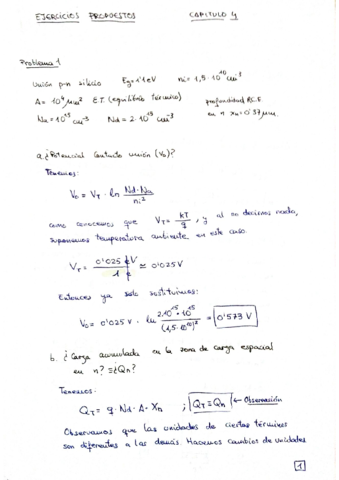 EJERCICIOS PROPUESTOS CAPITULO 4
Problema 1
Unión pn silicio Eg=1'1eV ni=1,5·10^10 cm^-3
A= 10^4 μm^2 E.T. (equilibrio térmico) profundidad R.C.E
Na=10^15 cm^-3 Nd=2·10^15 cm^-3 en n xn=0'37μm
a. ¿Potencial contacto unión (Vo)?
Tenemos:
Vo = VT · ln Nd·Na / ni^2
como conocemos que VT = kT/q , y al no decirnos nada,
suponemos temperatura ambiente en este caso.
VT = 0'025 eV / 1 e ≃ 0'025 V
Entonces ya solo sustituimos:
Vo = 0'025 V · ln 2·10^15 · 10^15 / (1,5·10^10)^2 = 0'573 V
b. ¿Carga acumulada en la zona de carga espacial
en n? ≡ ¿Qn?
Tenemos:
QT = q·Nd·A·Xn ; QT ≡ Qn ← Observación
Observamos que las unidades de ciertos términos
son diferentes a las demás. Hacemos cambios de unidades
1